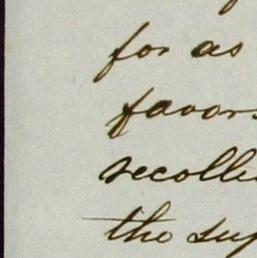 for as
favors
recolle
the sup